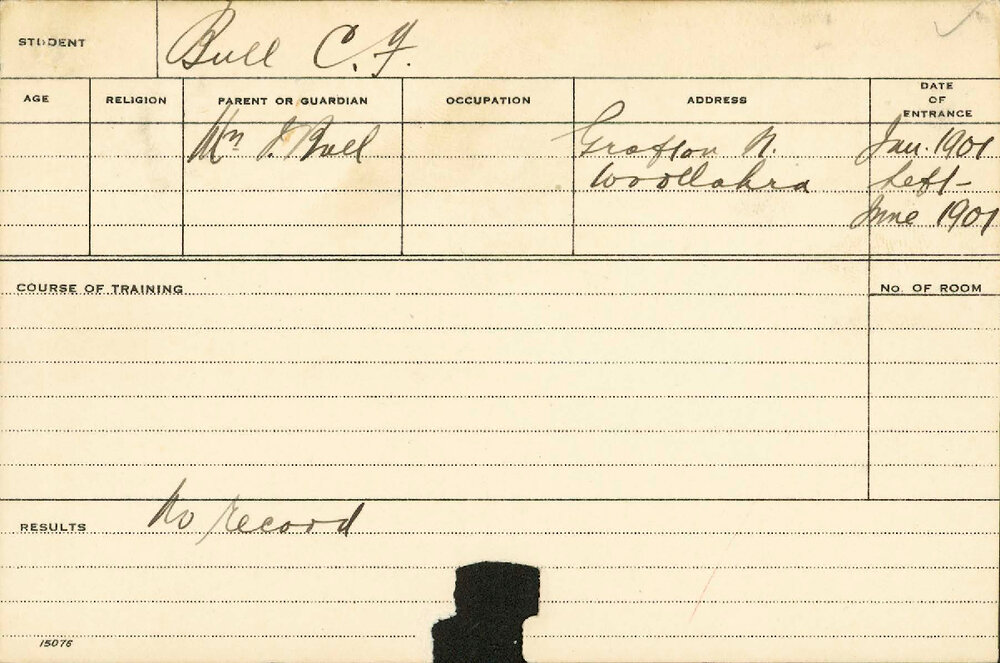 STUDENT Bull C. F.
AGE RELIGION PARENT OR GUARDIAN OCCUPATION ADDRESS DATE OF ENTRANCE
J. Bull Grafton Jan. 1901
Woollahra Left-
June 1901
COURSE OF TRAINING No. OF ROOM
RESULTS No record
15076